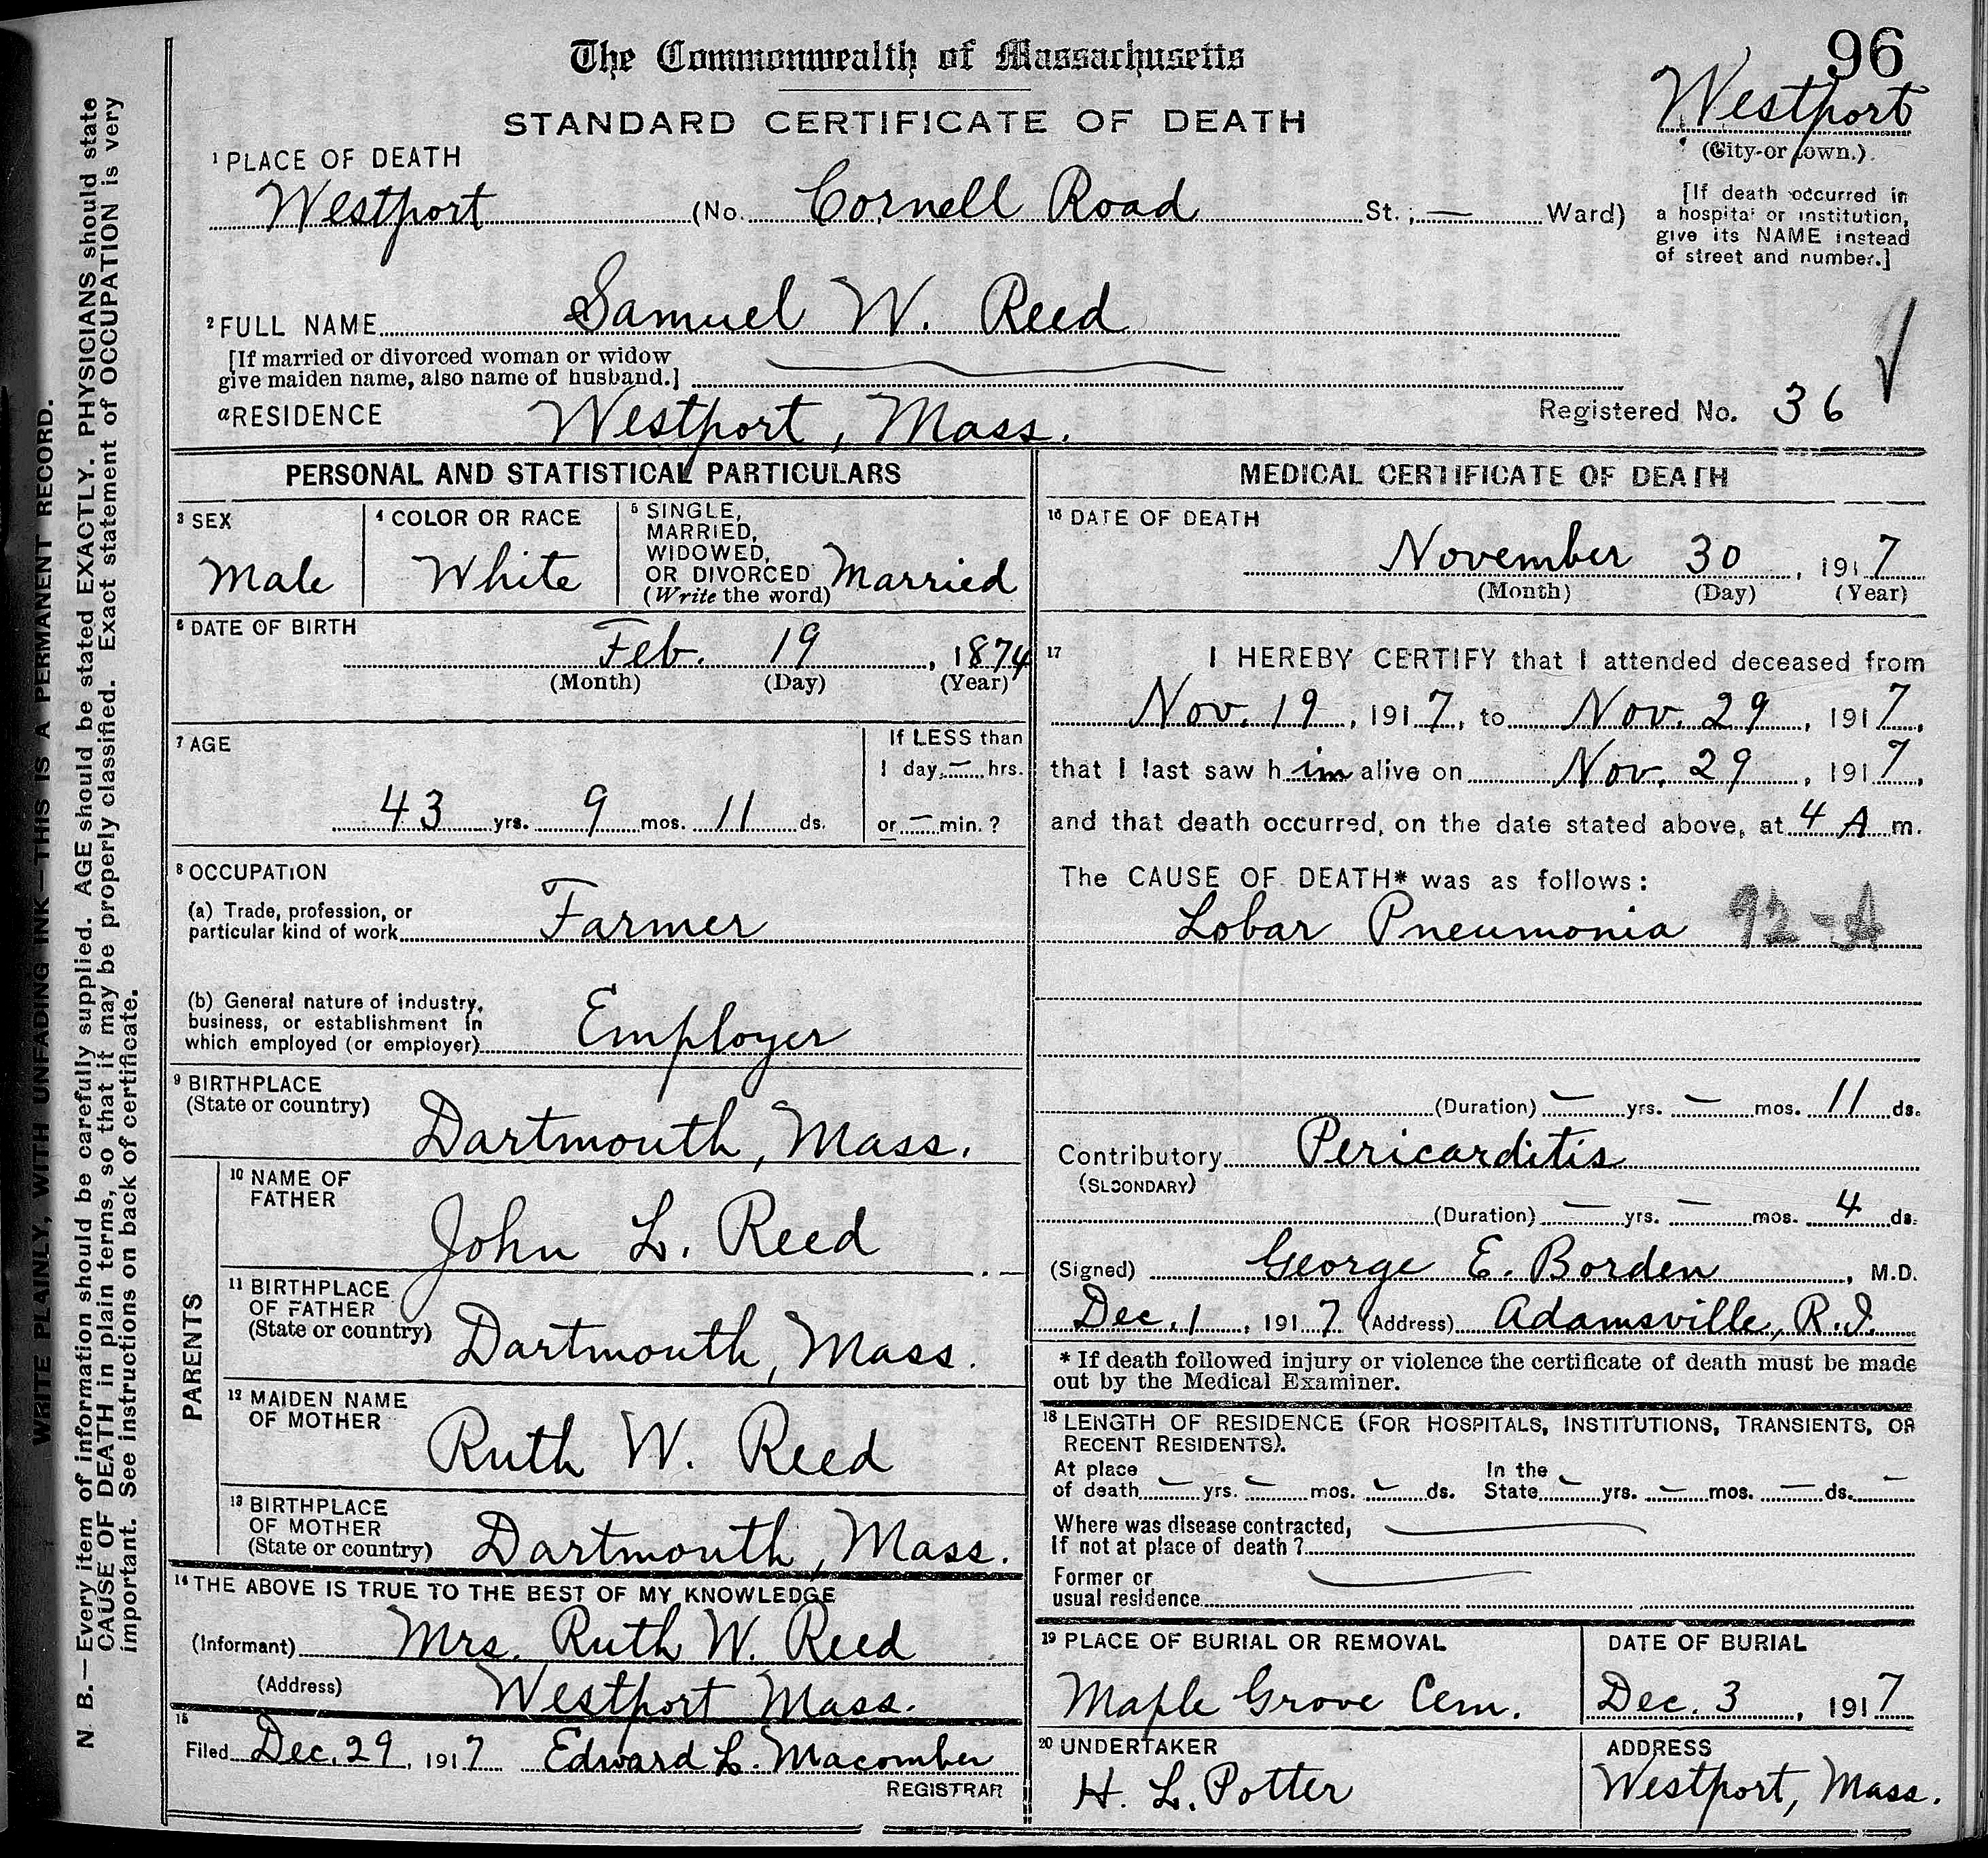 96
The Commonwealth of Massachusetts
STANDARD CERTIFICATE OF DEATH
Westport
(City or town.)
1 PLACE OF DEATH
Westport (No. Cornell Road St.; — Ward)
[If death occurred in
a hospital or institution,
give its NAME instead
of street and number.]
2 FULL NAME Samuel W. Reed
[If married or divorced woman or widow
give maiden name, also name of husband.]
a RESIDENCE Westport, Mass.
Registered No. 36
PERSONAL AND STATISTICAL PARTICULARS
3 SEX
Male
4 COLOR OR RACE
White
5 SINGLE,
MARRIED,
WIDOWED,
OR DIVORCED
(Write the word) Married
6 DATE OF BIRTH
Feb. 19, 1874
(Month) (Day) (Year)
7 AGE
43 yrs. 9 mos. 11 ds.
If LESS than
1 day, — hrs.
or — min.?
8 OCCUPATION
(a) Trade, profession, or
particular kind of work Farmer
(b) General nature of industry,
business, or establishment in
which employed (or employer) Employer
9 BIRTHPLACE
(State or country)
Dartmouth, Mass.
PARENTS
10 NAME OF
FATHER
John L. Reed
11 BIRTHPLACE
OF FATHER
(State or country) Dartmouth, Mass.
12 MAIDEN NAME
OF MOTHER
Ruth W. Reed
13 BIRTHPLACE
OF MOTHER
(State or country) Dartmouth, Mass.
14 THE ABOVE IS TRUE TO THE BEST OF MY KNOWLEDGE
(Informant) Mrs. Ruth W. Reed
(Address) Westport Mass.
15
Filed Dec. 29, 1917 Edward L. Macomber
REGISTRAR
MEDICAL CERTIFICATE OF DEATH
16 DATE OF DEATH
November 30, 1917
(Month) (Day) (Year)
17 I HEREBY CERTIFY that I attended deceased from
Nov. 19, 1917, to Nov. 29, 1917,
that I last saw him alive on Nov. 29, 1917,
and that death occurred, on the date stated above, at 4 A m.
The CAUSE OF DEATH* was as follows:
Lobar Pneumonia 92-A
(Duration) — yrs. — mos. 11 ds.
Contributory Pericarditis
(SECONDARY)
(Duration) — yrs. — mos. 4 ds.
(Signed) George E. Borden, M.D.
Dec. 1, 1917 (Address) Adamsville, R.I.
* If death followed injury or violence the certificate of death must be made
out by the Medical Examiner.
18 LENGTH OF RESIDENCE (FOR HOSPITALS, INSTITUTIONS, TRANSIENTS, OR
RECENT RESIDENTS).
At place
of death — yrs. — mos. — ds.
In the
State — yrs. — mos. — ds. —
Where was disease contracted,
If not at place of death?
Former or
usual residence
19 PLACE OF BURIAL OR REMOVAL
Maple Grove Cem.
DATE OF BURIAL
Dec. 3, 1917
20 UNDERTAKER
H. L. Potter
ADDRESS
Westport, Mass.
WRITE PLAINLY, WITH UNFADING INK—THIS IS A PERMANENT RECORD.
N. B.—Every item of information should be carefully supplied. AGE should be stated EXACTLY. PHYSICIANS should state
CAUSE OF DEATH in plain terms, so that it may be properly classified. Exact statement of OCCUPATION is very
important. See instructions on back of certificate.